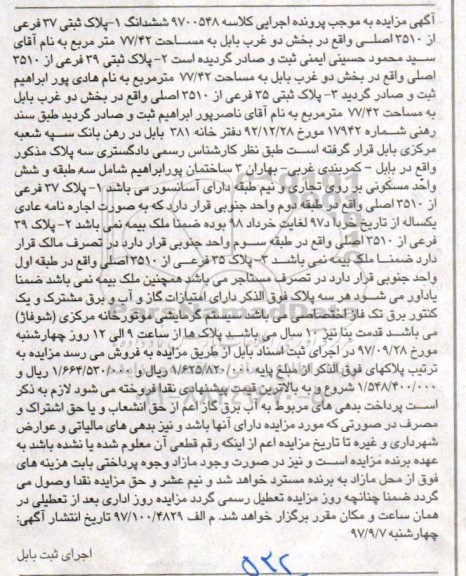 آگهی مزایده به موجب پرونده اجرایی کلاسه ۹۷۰۰۵۴۸ ششدانگ ۱-پلاک ثبتی ۳۷ فرعی
از ۳۵۱۰ اصلی واقع در بخش دو غرب بابل به مساحت ۷۷/۴۲ متر مربع به نام آقای
سید محمود حسینی ایمنی ثبت و صادر گردیده است ۲- پلاک ثبتی ۳۹ فرعی از ۳۵۱۰
اصلی واقع در بخش دو غرب بابل به مساحت ۷۷/۴۲ مترمربع به نام هادی پور ابراهیم
ثبت و صادر گردید ۳- پلاک ثبتی ۳۵ فرعی از ۳۵۱۰ اصلی واقع در بخش دو غرب بابل
به مساحت ۷۷/۴۲ مترمربع به نام آقای ناصرپور ابراهیم ثبت و صادر گردید طبق سند
رهنی شماره ۱۷۹۴۲ مورخ ۹۲/۱۲/۲۸ دفتر خانه ۳۸۱ بابل در رهن بانک سپه شعبه
مرکزی بابل قرار گرفته است طبق نظر کارشناس رسمی دادگستری سه پلاک مذکور
واقع در بابل - کمربندی غربی - بهاران ۳ ساختمان پورابراهیم شامل سه طبقه و شش
واحد مسکونی بر روی تجاری و نیم طبقه دارای آسانسور می باشد ۱- پلاک ۳۷ فرعی
از ۳۵۱۰ اصلی واقع در طبقه دوم واحد جنوبی قرار دارد که به صورت اجاره نامه عادی
یکساله از تاریخ خرداد ۹۷ لغایت خرداد ۹۸ بوده ضمنا ملک بیمه نمی باشد ۲- پلاک ۳۹
فرعی از ۳۵۱۰ اصلی واقع در طبقه سوم واحد جنوبی قرار دارد در تصرف مالک قرار
دارد ضمنا ملک بیمه نمی باشد ۳- پلاک ۳۵ فرعی از ۳۵۱۰ اصلی واقع در طبقه اول
واحد جنوبی قرار دارد در تصرف مستاجر می باشد همچنین ملک بیمه نمی باشد ضمنا
یادآور می شود هر سه پلاک فوق الذکر دارای امتیازات گاز و آب و برق مشترک و یک
کنتور برق تک فاز اختصاصی می باشد سیستم گرمایشی آن موتور خانه مرکزی (شوفاژ)
می باشد قدمت بنا نیز ۱۰ سال می باشد پلاک ها از ساعت ۹ الی ۱۲ روز چهارشنبه
مورخ ۹۷/۰۹/۲۸ در اجرای ثبت اسناد بابل از طریق مزایده به فروش می رسد مزایده به
ترتیب پلاکهای فوق الذکر از مبلغ پایه ۱/۶۲۵/۸۲۰/۰۰۰ ریال و ۱/۶۶۴/۵۳۰/۰۰۰ ریال و
۱/۵۴۸/۴۰۰/۰۰۰ شروع و به بالاترین قیمت پیشنهادی نقدا فروخته می شود لازم به ذکر
است پرداخت بدهی های مربوط به آب برق گاز اعم از حق انشعاب و یا حق اشتراک و
مصرف در صورتی که مورد مزایده دارای آنها باشد و نیز بدهی های مالیاتی و عوارض
شهرداری و غیره تا تاریخ مزایده اعم از اینکه رقم قطعی آن معلوم شده یا نشده باشد به
عهده برنده مزایده است و نیز در صورت وجود مازاد وجوه پرداختی بابت هزینه های
فوق از محل مازاد به برنده مسترد خواهد شد و نیم عشر و حق مزایده نقدا وصول می
گردد ضمنا چنانچه روز مزایده تعطیل رسمی گردد مزایده روز اداری بعد از تعطیلی در
همان ساعت و مکان مقرر برگزار خواهد شد. م الف ۹۷/۱۰۰/۴۸۲۹ تاریخ انتشار آگهی:
چهارشنبه ۹۷/۹/۷
اجرای ثبت بابل
۵۳۲